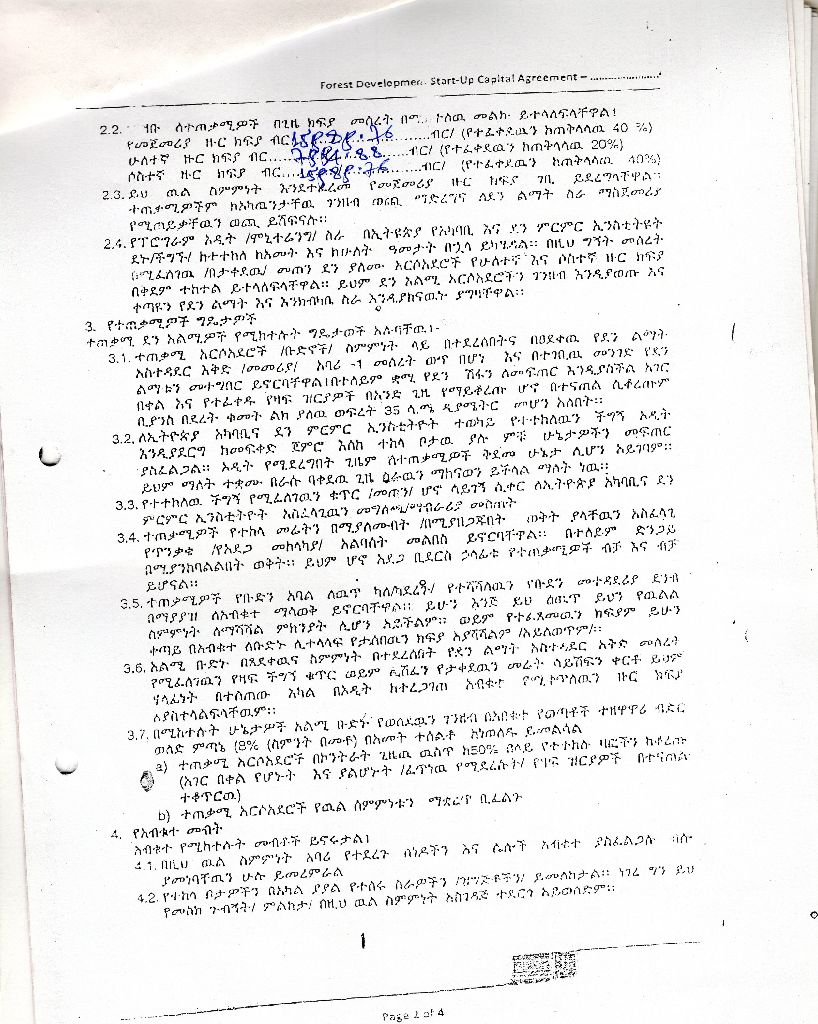 Forest Developmen. Start-Up Capital Agreement – .......................
2.2. ለተጠቃሚዎች በጊዜ ክፍያ መሰረት መልኩ ይተላለፍላቸዋል፤
የመጀመሪያ ዙር ክፍያ ብር ...........ብር/ (የተፈቀደዉን ከጠቅላላዉ 40 %)
ሁለተኛ ዙር ክፍያ ብር ...........ብር/ (የተፈቀደዉን ከጠቅላላዉ 20%)
ሶስተኛ ዙር ክፍያ ብር ...........ብር/ (የተፈቀደዉን ከጠቅላላዉ 40%)
2.3. ይህ ዉል ስምምነት እንደተፈረመ የመጀመሪያ ዙር ክፍያ ገቢ ይደረግላቸዋል።
ተጠቃሚዎችም ከአካዉንታቸዉ ገንዘብ ወጪ ማድረግና ለደን ልማት ስራ ማስጀመሪያ
የሚጠይቃቸዉን ወጪ ይሸፍናሉ።
2.4. የፕሮግራም ኦዲት /ሞኒተሪንግ/ ስራ በኢትዮጵያ የአካባቢ እና ደን ምርምር ኢንስቲትዩት
ደኑ/ችግኙ/ ከተተከለ ከአመት እና ከሁለት ዓመታት በኋላ ይካሄዳል። በዚህ ግኝት መሰረት
በሚፈለገዉ /በታቀደዉ/ መጠን ደን ያለሙ አርሶአደሮች የሁለተኛ እና ሶስተኛ ዙር ክፍያ
በቀደም ተከተል ይተላለፍላቸዋል። ይህም ደን አልሚ አርሶአደሮችን ገንዘብ እንዲያወጡ እና
ቀጣዩን የደን ልማት እና እንክብካቤ ስራ እንዲያከናዉኑ ያግዛቸዋል።
3. የተጠቃሚዎች ግዴታዎች
ተጠቃሚ ደን አልሚዎች የሚከተሉት ግዴታወች አሉባቸዉ፤-
3.1. ተጠቃሚ አርሶአደሮች /ቡድኖች/ ስምምነት ላይ በተደረሰበትና በፀደቀዉ የደን ልማት
አስተዳደር እቅድ /መመሪያ/ አባሪ -1 መሰረት ወጥ በሆነ እና በተገቢዉ መንገድ የደን
ልማቱን መተግበር ይኖርባቸዋል፤በተለይም ቋሚ የደን ሽፋን ለመፍጠር እንዲያስችል አገር
በቀል እና የተፈቀዱ የዛፍ ዝርያዎች በአንድ ጊዜ የማይቆረጡ ሆኖ በተናጠል ሲቆረጡም
ቢያንስ በደረት ቁመት ልክ ያለዉ ወፍረት 35 ሳ.ሜ ዲያሜትር መሆን አለበት።
3.2. ለኢትዮጵያ አካባቢና ደን ምርምር ኢንስቲትዮት ተወካይ የተተከለዉን ችግኝ ኦዲት
እንዲያደርግ ከመፍቀድ ጀምሮ እስከ ተከላ ቦታዉ ያሉ ምቹ ሁኔታዎችን መፍጠር
ያስፈልጋል። ኦዲት የሚደረግበት ጊዜም ለተጠቃሚዎች ቅድመ ሁኔታ ሊሆን አይገባም።
ይህም ማለት ተቋሙ በራሱ ባቀደዉ ጊዜ ስራዉን ማከናወን ይችላል ማለት ነዉ።
3.3. የተተከለዉ ችግኝ የሚፈለገዉን ቁጥር /መጠን/ ሆኖ ሳይገኝ ሲቀር ለኢትዮጵያ አካባቢና ደን
ምርምር ኢንስቲትዮት አስፈላጊዉን መግለጫ/ማብራሪያ መስጠት
3.4. ተጠቃሚዎች የተከላ መሬትን በሚያለሙበት /በሚያበጋጁበት ወቅት ያላቸዉን አስፈላጊ
የጥንቃቄ /የአደጋ መከላከያ/ አልባሳት መልበስ ይኖርባቸዋል። በተለይም ድንጋይ
በሚያንከባልልበት ወቅት። ይህም ሆኖ አደጋ ቢደርስ ኃላፊቱ የተጠቃሚዎች ብቻ እና ብቻ
ይሆናል።
3.5. ተጠቃሚዎች የቡድን አባል ለዉጥ ካለ/ካደረጉ/ የተሻሻለዉን የቡድን መተዳደሪያ ደንብ
በማያያዝ ለአብቁተ ማሳወቅ ይኖርባቸዋል። ይሁን እንጅ ይህ ለዉጥ ይህን የዉልል
ስምምነት ለማሻሻል ምክንያት ሊሆን አይችልም። ወይም የተፈጸመዉን ክፍያም ይሁን
ቀጣይ በአብቁተ ለቡድኑ ሊተላለፍ የታሰበዉን ክፍያ አያሻሽልም /አይለወጥም/።
3.6. አልሚ ቡድኑ በጸደቀዉና ስምምነት በተደረሰበት የደን ልማት አስተዳደር እቅድ መሰረት
የሚፈለገዉን የዛፍ ችግኝ ቁጥር ወይም ሊሸፈን የታቀደዉን መሬት ሳይሸፍን ቀርቶ ይህም
ሃላፊነት በተሰጠው አካል በኦዲት ከተረጋገጠ አብቁተ የሚቀጥለዉን ዙር ክፍያ
አያስተላልፍላቸዉም።
3.7. በሚከተሉት ሁኔታዎች አልሚ ቡድኑ የወሰደዉን ገንዘብ በአብቁተ የወጣቶች ተዘዋዋሪ ብድር
ወለድ ምጣኔ (8% (ስምንት በመቶ) በአመት ተሰልቶ ከነወለዱ ይመልሳል
a) ተጠቃሚ አርሶአደሮች በኮንትራት ጊዜዉ ዉስጥ ከ50% በላይ የተተከሉ ዛፎችን ከቆረጡ
(አገር በቀል የሆኑት እና ያልሆኑት /ፈጥነዉ የሚደረሱት/ የዛፍ ዝርያዎች በተናጠል
ተቆጥርዉ)
b) ተጠቃሚ አርሶአደሮች የዉል ስምምነቱን ማቋረጥ ቢፈልጉ
4. የአብቁተ መብት
አብቁተ የሚከተሉት መብቶች ይኖሩታል፤
4.1. በዚህ ዉል ስምምነት አባሪ የተደረጉ ሰነዶችን እና ሌሎች አብቁተ ያስፈልጋሉ ብሎ
ያመነባቸዉን ሁሉ ይመረምራል
4.2. የተከላ ቦታዎችን በአካል ያያል የተሰሩ ስራዎችን /ዝግጅቶችን/ ይመለከታል። ነገረ ግን ይህ
የመስክ ጉብኝት/ ምልከታ/ በዚህ ዉል ስምምነት አስገዳጅ ተደርጎ አይወሰድም።
1
Page 2 of 4